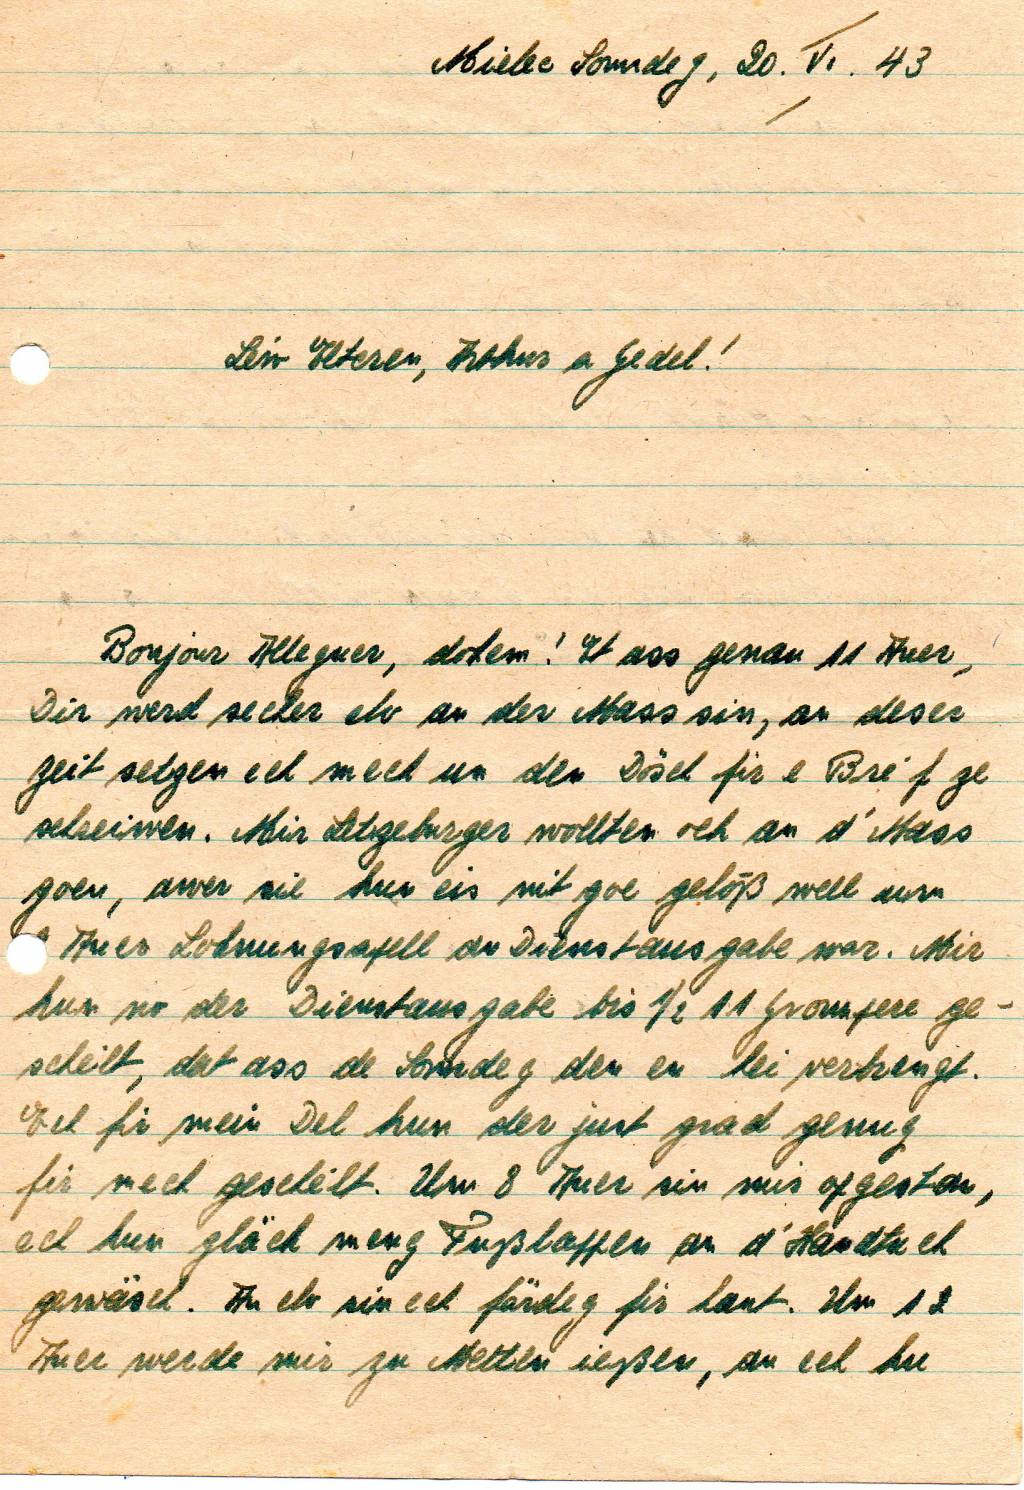 Mielec Sonndeg, 20. VI. 43
Leiw Elteren, Arthur a Gedel!
Bonjour Alleguer, dohem! Et ass genau 11 Auer,
Dir werd secher elo an der Mass sin, an deser
zeit setzen ech mech un den Dösch fir e Bréf ze
schreiwen. Mir Letzeburger wollten och an d'Mass
goen, awer sie hun eis nit goe gelöß well um
Auer Lohnungsapell an Dienstausgabe war. Mir
hun no der Dienstausgabe bis 1/2 11 Gromperе ge-
scheilt, dat ass de Sonndeg den en hei verbrengt.
Ech fir mein Del hun der just grad genug
fir mech gescheilt. Um 8 Auer sin mir opgestan,
ech hun gläch meng Fußlappen an d'Handtuch
gewäsch. An elo sin ech färdeg fir haut. Um 12
Auer werde mir zu Metten ießen, an ech hu